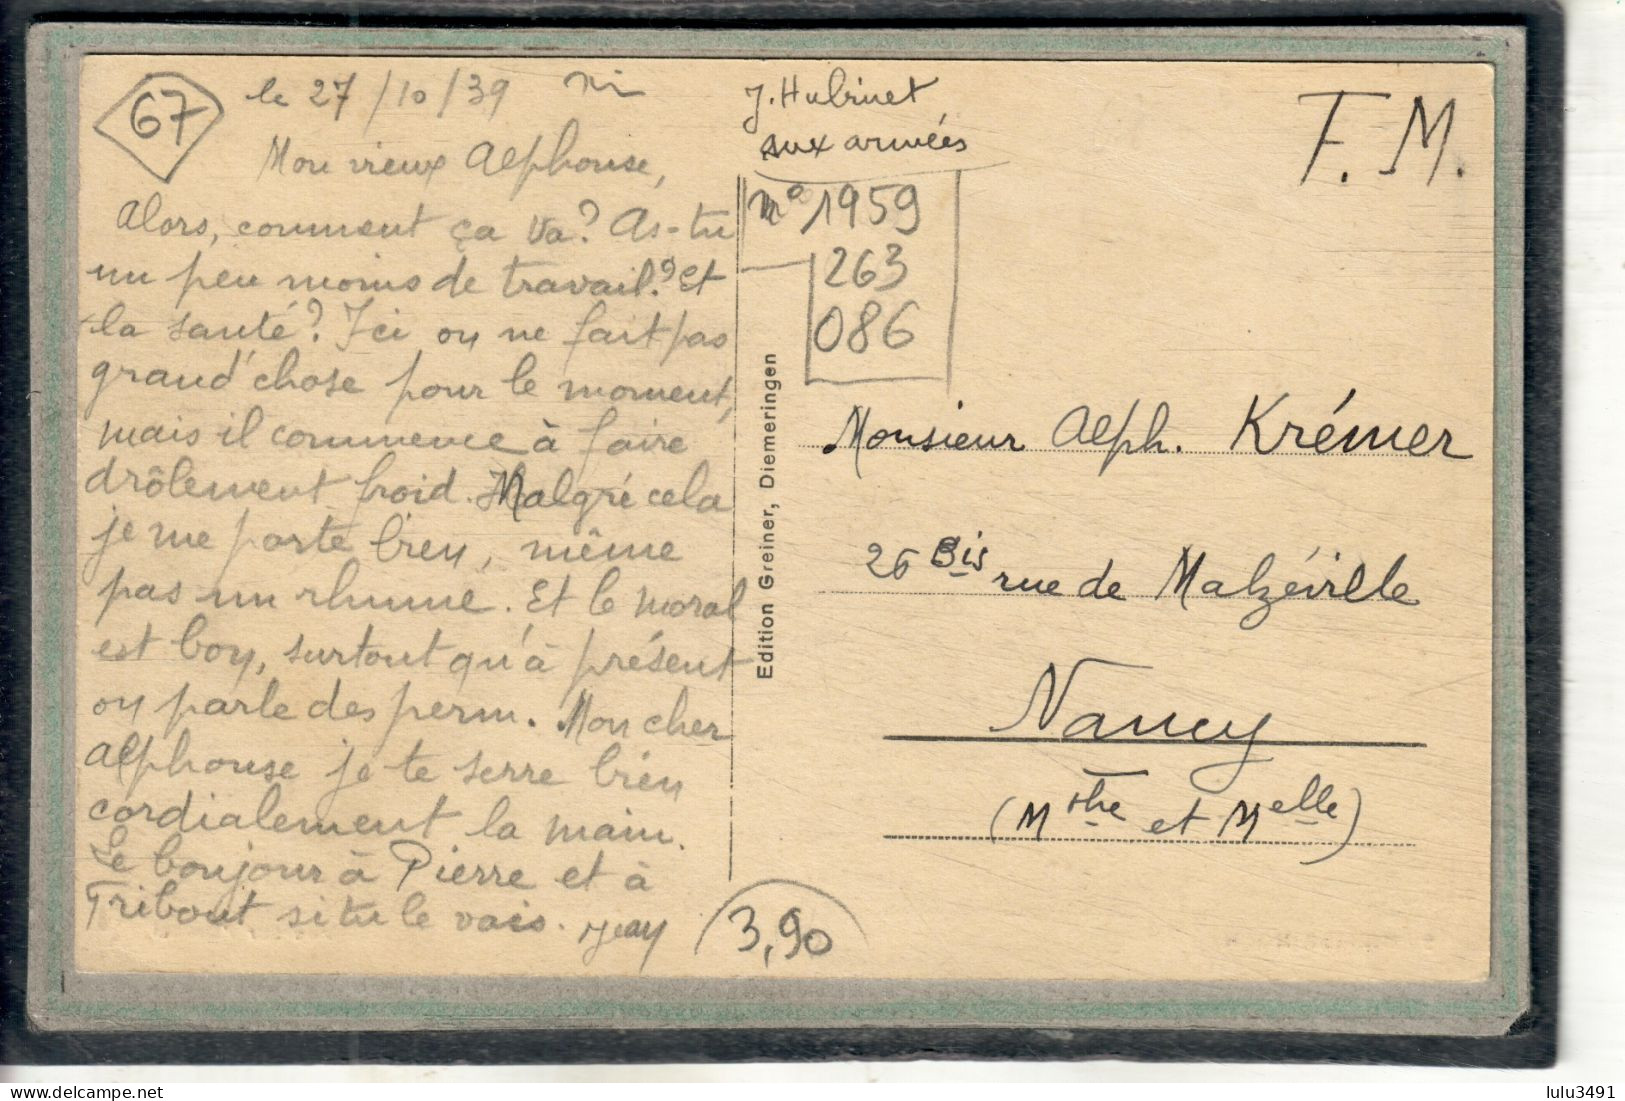 67
le 27/10/39
Mon vieux Alphonse,
Alors, comment ça va? As-tu
un peu moins de travail? Et
la santé? Ici on ne fait pas
grand'chose pour le moment,
mais il commence à faire
drôlement froid. Malgré cela
je me porte bien, même
pas un rhume. Et le moral
est bon, surtout qu'à présent
on parle des perm. Mon cher
Alphonse je te serre bien
cordialement la main.
Le bonjour à Pierre et à
Tribout si tu le vois. Jean
J. Hubinet
aux armées
n° 1959
263
086
F.M.
Edition Greiner, Diemeringen
Monsieur Alph. Krémer
26 Bis rue de Malzéville
Nancy
(Mthe et Melle)
3,90
lulu3491